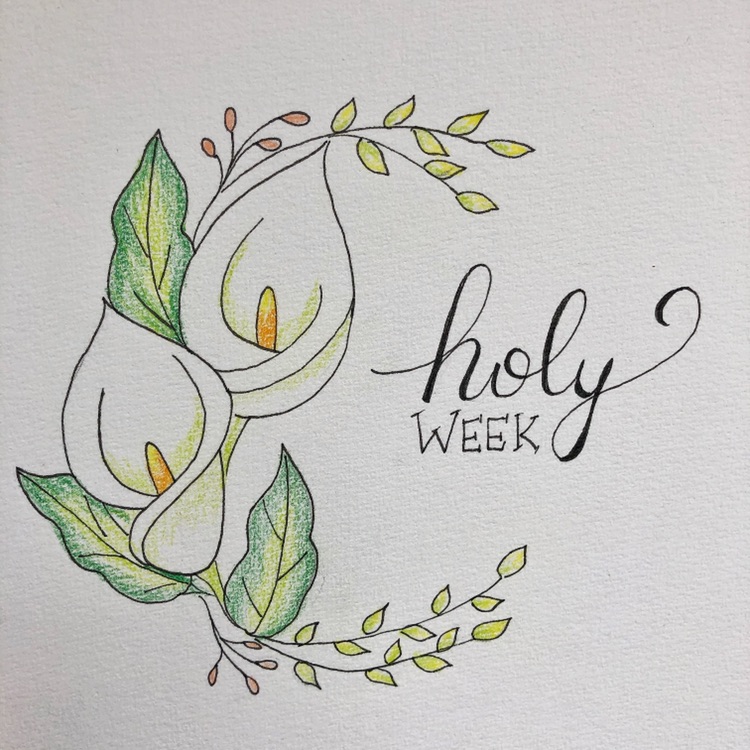 holy
WEEK